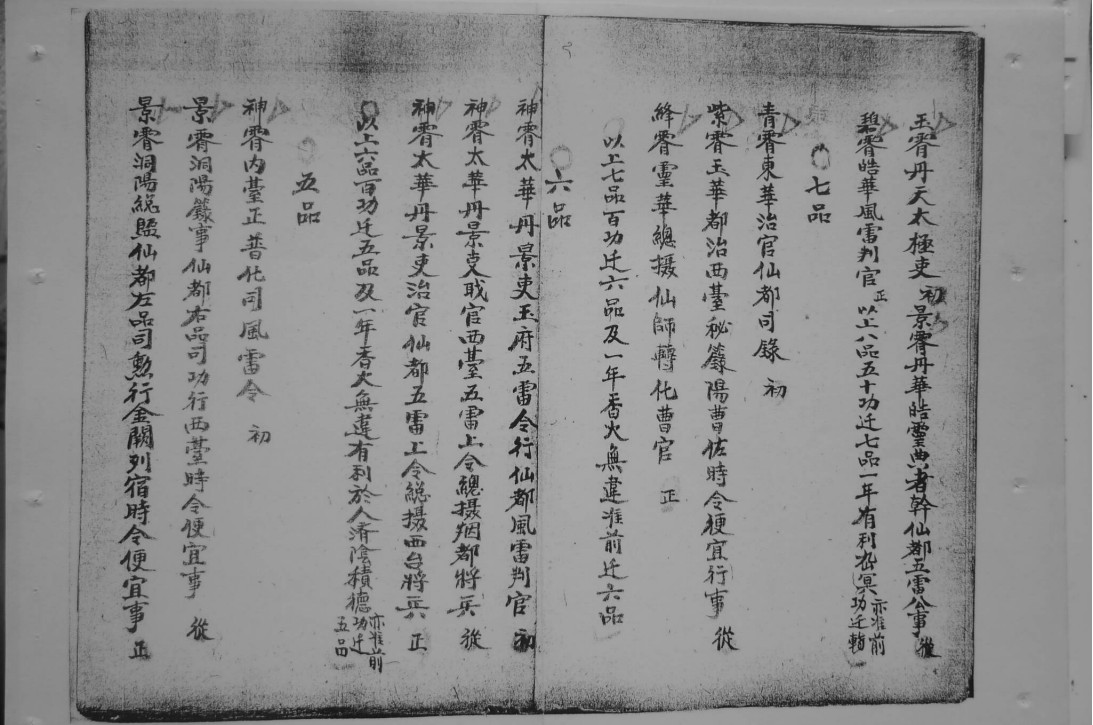 玉霄丹天太極吏 初 景霄丹華皓靈典者幹仙都五雷公事 從
碧霄皓華風雷判官 正 以上八品五十功迁七品一年有利於冥亦准前功迁轉
七品
青霄東華治官仙都司錄 初
紫霄玉華都治西臺秘籙陽曹佐時令便宜行事 從
絳霄靈華總摄仙師轉化曹官 正
以上七品百功迁六品及一年香火無違准前迁六品
六品
神霄太華丹景吏玉府五雷令行仙都風雷判官 初
神霄太華丹景吏職官西臺五雷上令總摄烟都將兵 從
神霄太華丹景吏治官仙都五雷上令總摄西台將兵 正
以上六品百功迁五品及一年香火無違有利於人済陰積德亦准前功迁五品
五品
神霄內臺正普化司風雷令 初
景霄洞陽籙事仙都右品司功行西臺時令便宜事 從
景霄洞陽總照仙都左品司勲行金闕列宿時令便宜事 正